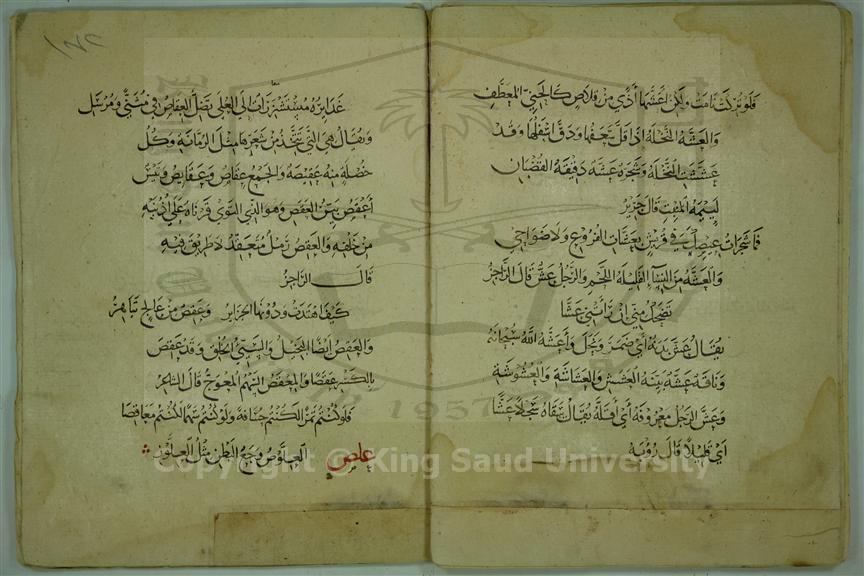 فلو تركت نامت ولكن اعشها اذى من قلاص كالحني المعطف
والعشة النخلة اذا قل سعفها ودق اسفلها وقد
عششت النخلة وشجرة عشة دقيقة القضبان
لئيمة المنبت قال جرير
فما شجرات عيصك في قريش بعشات الفروع ولا ضواحي
والعشة من النساء القليلة اللحم والرجل عش قال الراجز
تضحك مني ان رأتني عشا
يقال عش بدنه اي ضمر ونحل واعشه الله سبحانه
وناقة عشة بينة العشش والعشاشة والعشوشة
وعش الرجل معروفه اي اقله يقال سقاه سجلا عشا
اي قليلا قال رؤبة
١٧٢
غدايره مستشزرات الى العلى تضل العقاص في مثنى ومرسل
ويقال هي التي تتخذ من شعرها مثل الرمانة وكل
خصلة منه عقيصة والجمع عقاص وعقايص وتيس
اعقص بين العقص وهو الذي التوى قرناه على اذنيه
من خلفه والعقص رمل متعقد لا طريق فيه
قال الراجز
كيف اهتدت ودونها الجزاير وعقص من عالج تياهر
والعقص ايضا البخيل والسيئ الخلق وقد عقص
بالكسر عقصا والمعقص السهم المعوج قال الشاعر
فلو كنتم تمرا لكنتم حشافة ولو كنتم سهما لكنتم معاقصا
علص العلوص وجع البطن مثل العلوز
Copyright © King Saud University
1957